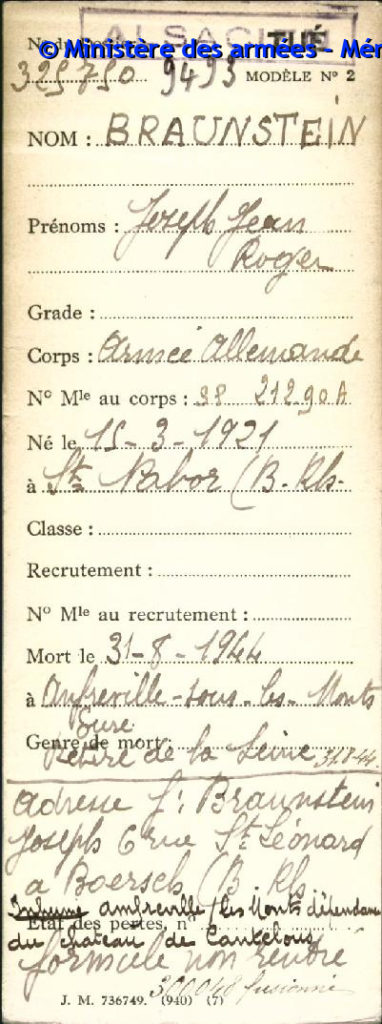 ALSACIEN TUÉ
© Ministère des armées - Mém
325750 9493 MODÈLE Nº 2
NOM : BRAUNSTEIN
Prénoms : Joseph Jean
Roger
Grade :
Corps : Armée Allemande
Nº Mle au corps : 38 21290A
Né le 15-3-1921
à St Nabor (B. Rh.
Classe :
Recrutement :
Nº Mle au recrutement :
Mort le 31-8-1944
à Amfreville-sous-les-Monts
Eure
Genre de mort :
Retiré de la Seine 31.8.44.
adresse f: Braunstein
Joseph 6 rue St Léonard
a Boersch (B. Rh
Inhumé amfreville/les Monts dépendance
État des pertes, nº
du château de Canteloup
formule non rendue
300048 fusionné
J. M. 736749. (940) (7)